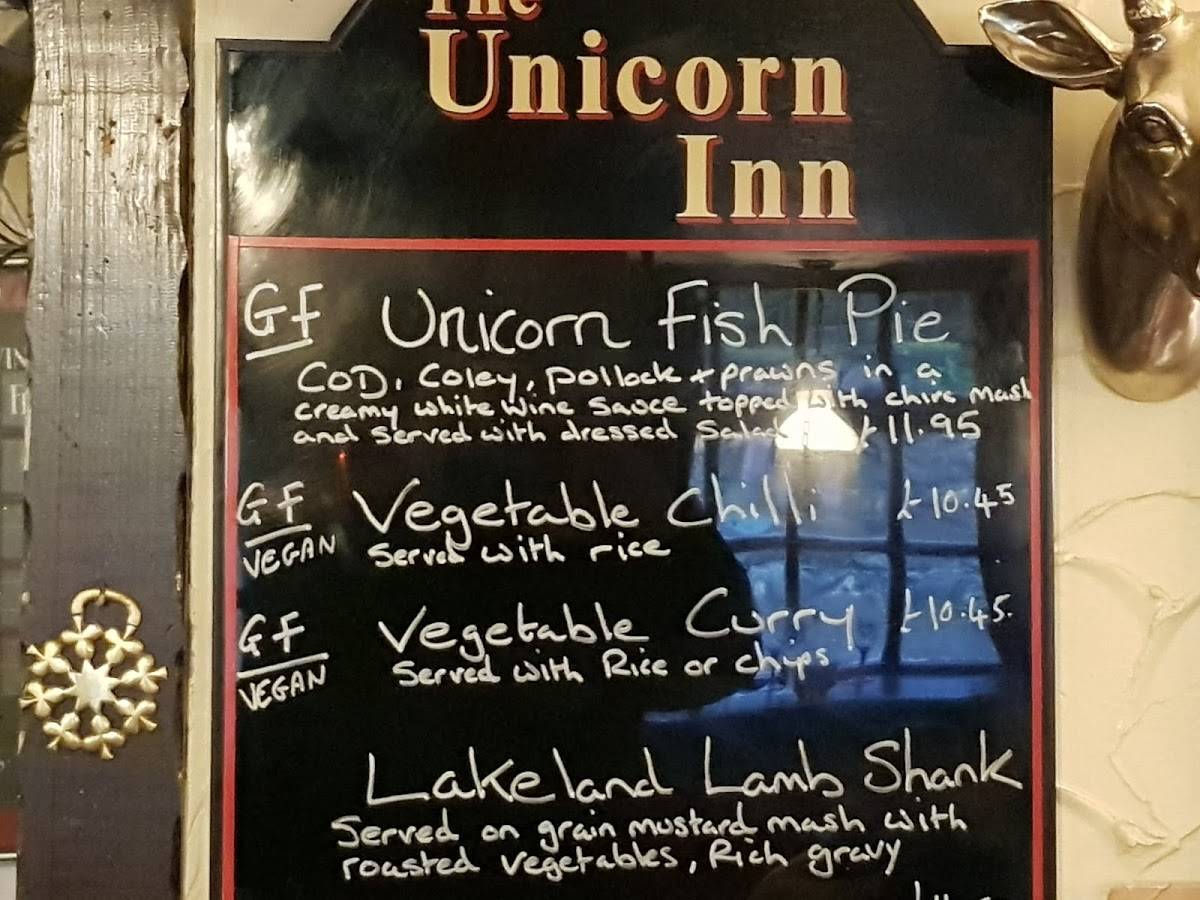 The
Unicorn
Inn
GF Unicorn Fish Pie
COD, Coley, Pollock + prawns in a
creamy white wine sauce topped with chive mash
and served with dressed Salad £11.95
GF Vegetable Chilli £10.45
VEGAN Served with rice
GF Vegetable Curry £10.45.
VEGAN Served with Rice or chips
Lakeland Lamb Shank
Served on grain mustard mash with
roasted vegetables, Rich gravy